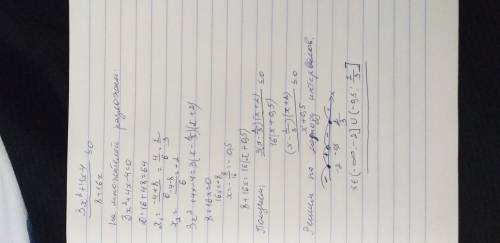 3x²+4x-4 / 8+16x ≤0
На множители разложим:
3x²+4x-4=0
D=16+48=64
x₁= -4+8 / 6 = 4/6 = 2/3
x₂= -4-8 / 6 = -2
3x²+4x-4=3(x-2/3)(x+2)
8+16x=0
16x=-8
x=-8/16=-0,5
8+16x=16(x+0,5)
Получим: 3(x-2/3)(x+2) / 16(x+0,5) ≤0
(x-2/3)(x+2) / x+0,5 ≤0
Решим по методу интервалов.
-2 -0,5 2/3 x
x∈(-∞,-2]∪(-0,5; 2/3]